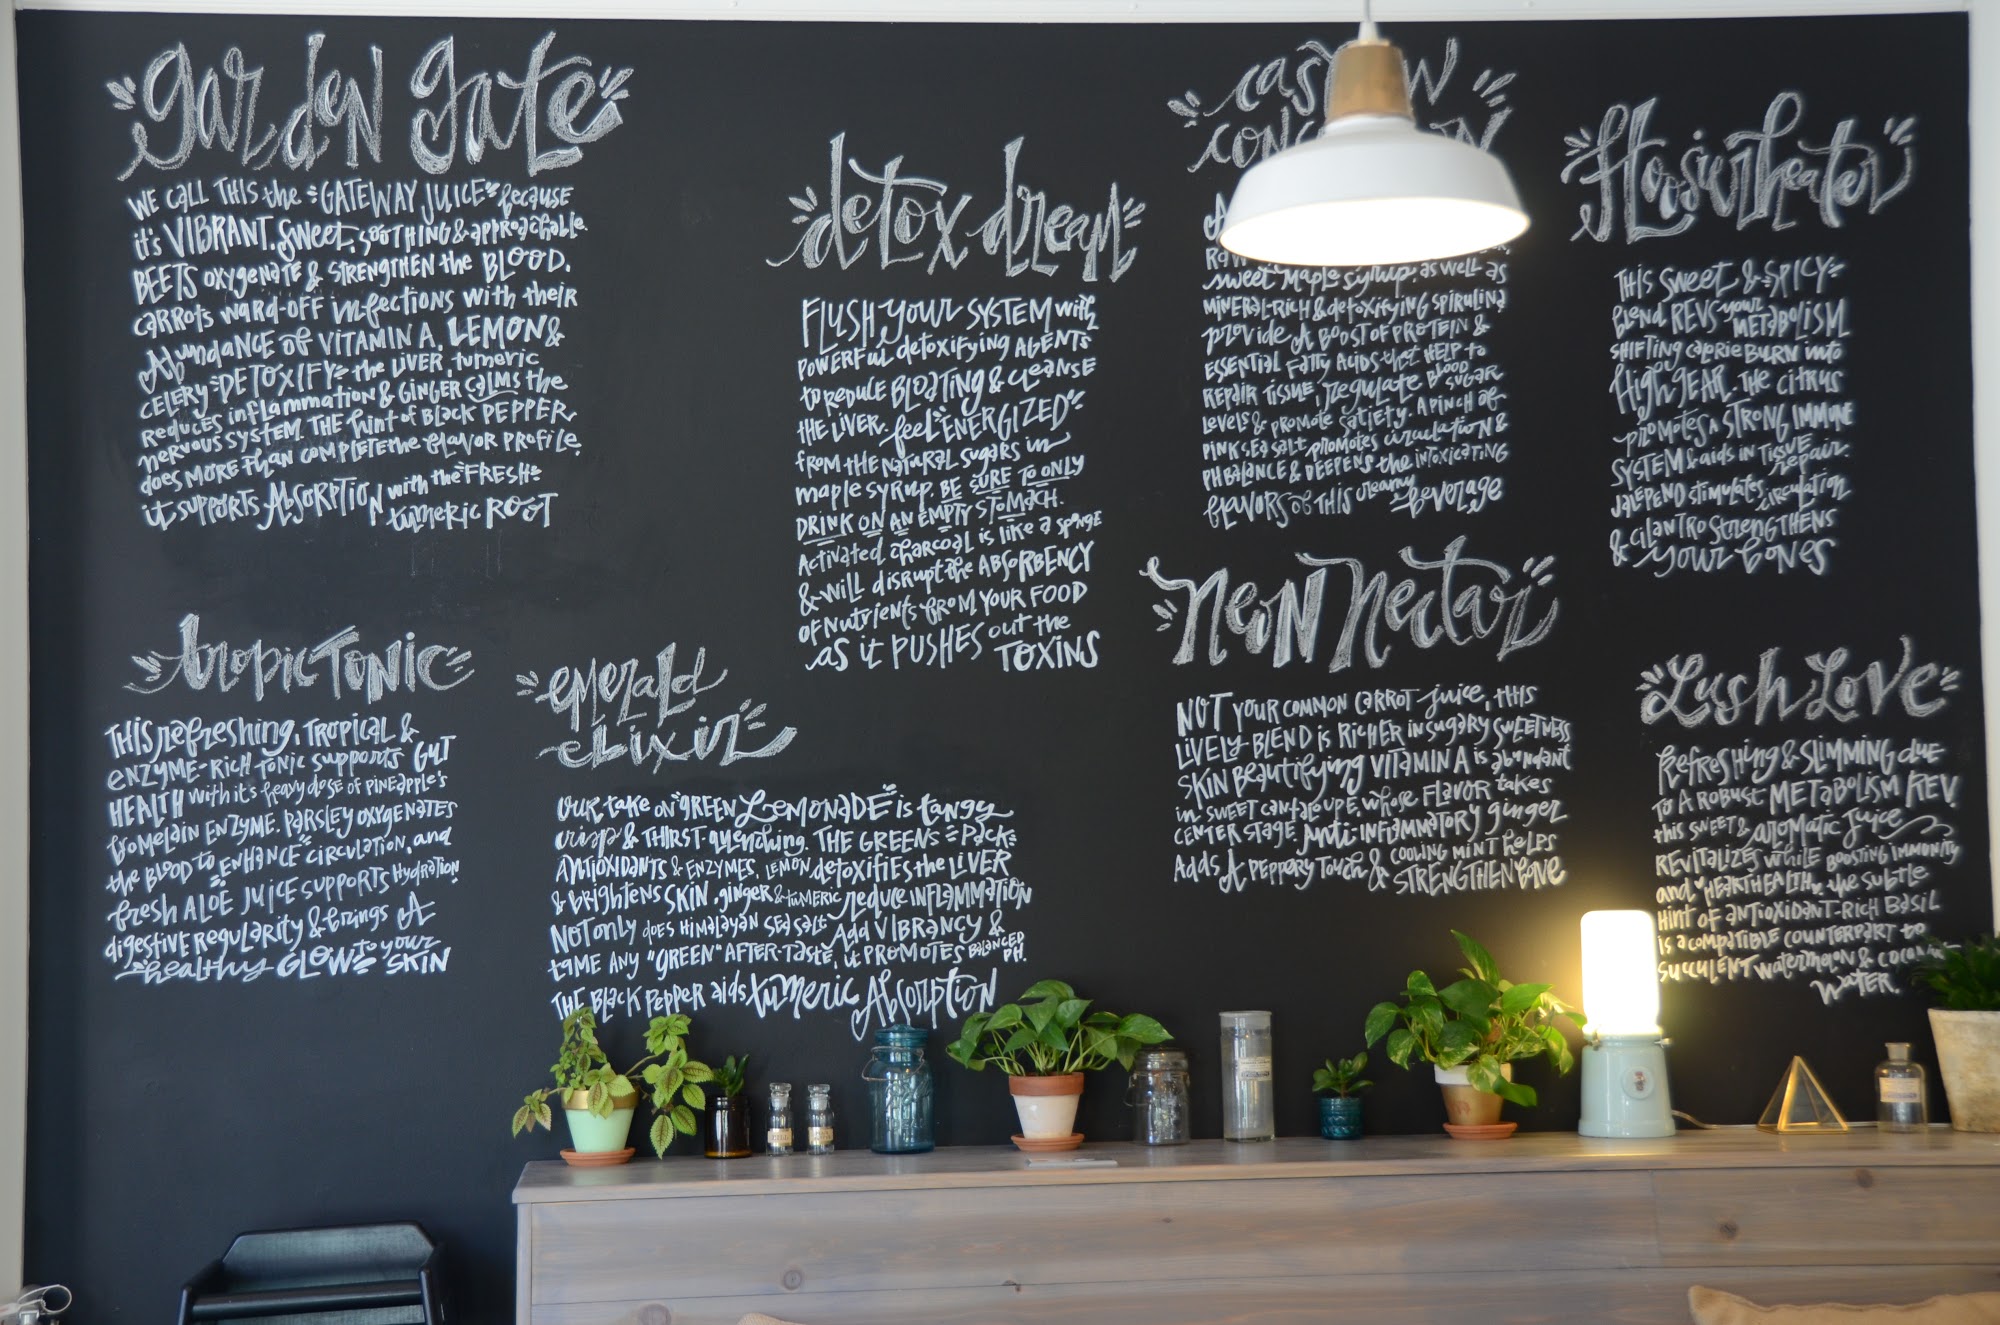 garden gate
WE CALL THIS the "GATEWAY JUICE" because
it's VIBRANT, sweet, SOOTHING & approachable.
BEETS OXYGENATE & STRENGTHEN the BLOOD,
CARROTS WARD-OFF infections with their
Abundance of VITAMIN A, LEMON &
CELERY "DETOXIFY" the LIVER, tumeric
reduces inflammation & GINGER CALMS the
nervous system. THE hint of BLACK PEPPER
does MORE THAN COMPLETE the flavor PROFILE.
it supports Absorption with the "FRESH"
tumeric ROOT
detox dream
FLUSH your SYSTEM with
POWERFUL detoxifying AGENTS
to reduce BLOATING & cleanse
the LIVER. feel "ENERGIZED"
from the natural sugars in
maple syrup. BE SURE TO ONLY
DRINK ON AN EMPTY STOMACH.
Activated charcoal is like a sponge
& will disrupt the ABSORBENCY
OF Nutrients from YOUR FOOD
as it PUSHES out the
TOXINS
sweet maple syrup, as well as
MINERAL-RICH & detoxifying spirulina
provide A BOOST OF PROTEIN &
ESSENTIAL Fatty ACIDS that HELP to
REPAIR TISSUE, regulate BLOOD SUGAR
Levels & promote satiety. A PINCH of
PINK SEA SALT promotes circulation &
PH BALANCE & DEEPENS the intoxicating
flavors of THIS creamy beverage
Hoosier heater
THIS sweet & SPICY
blend REVS your METABOLISM
SHIFTING calorie BURN into
HIGH GEAR. The CITRUS
promotes A STRONG IMMUNE
SYSTEM & aids in Tissue repair.
JALEPENO stimulates circulation
& CILANTRO STRENGTHENS
your bones
tropic TONIC
THIS refreshing, TROPICAL &
ENZYME-RICH TONIC supports GUT
HEALTH with it's heavy dose OF PINEapple's
bromelain ENZYME. PARSLEY OXYGENATES
the BLOOD to "ENHANCE" CIRCULATION, and
fresh ALOE JUICE SUPPORTS Hydration
digestive Regularity & brings A
"healthy GLOW" to your SKIN
emerald
elixir
OUR take on "GREEN LEMONADE" is tangy
crisp & THIRST quenching. THE GREENS "PACK"
ANTIOXIDANTS & ENZYMES, LEMON detoxifies the LIVER
& brightens SKIN, ginger & TUMERIC reduce INFLAMMATION
NOT only does HIMALAYAN SEA SALT Add VIBRANCY &
tame ANY "GREEN" AFTER-TASTE, it PROMOTES BALANCED PH.
THE BLACK PEPPER aids tumeric Absorption
Neon Nectar
NOT YOUR COMMON CARROT juice, THIS
LIVELY BLEND IS RICHER in sugary SWEETNESS
SKIN Beautifying VITAMIN A is abundant
in SWEET cantaloupe, whose FLAVOR takes
CENTER STAGE. Anti-INFLAMMATORY ginger
Adds A Peppery Touch & COOLING MINT helps
STRENGTHEN BONE
Lush Love
Refreshing & SLIMMING due
to A ROBUST METABOLISM REV.
this SWEET & aromatic juice
REVITALIZES while BOOSTING IMMUNITY
and "HEART HEALTH", the subtle
HINT OF ANTIOXIDANT-RICH BASIL
is a compatible COUNTERPART to
SUCCULENT watermelon & coconut
WATER.